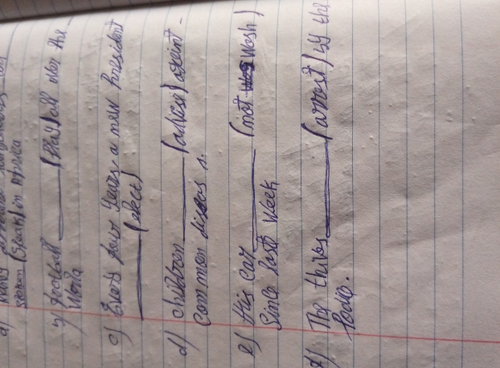 spoken (speak) in Africa
football ______ (play) all over the
World
c) Every four years a new President
______ (elect)
d) Children ______ (advise) againt-
common diseas s.
e) His car ______ (not wash)
Since last week
f) The thives ______ (arrest) by the